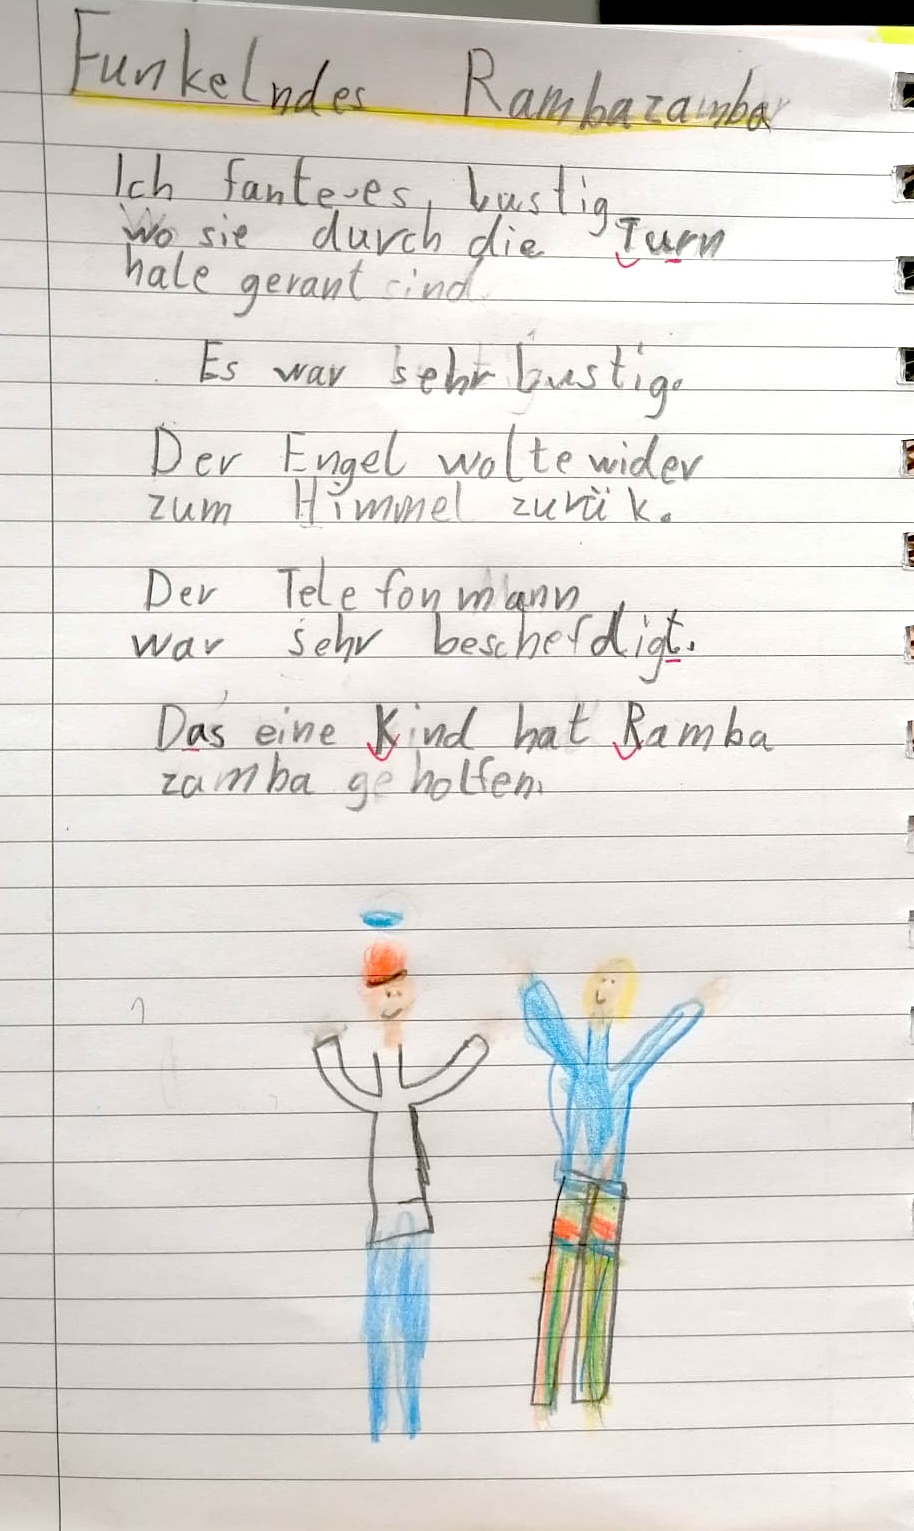 Funkelndes Rambazamba
Ich fante es lustig
Wo sie durch die Turn
hale gerant sind
Es war sehr lustig.
Der Engel wolte wider
zum Himmel zurük.
Der Telefonmann
war sehr beschefdigt.
Das eine Kind hat Ramba
zamba geholfen.